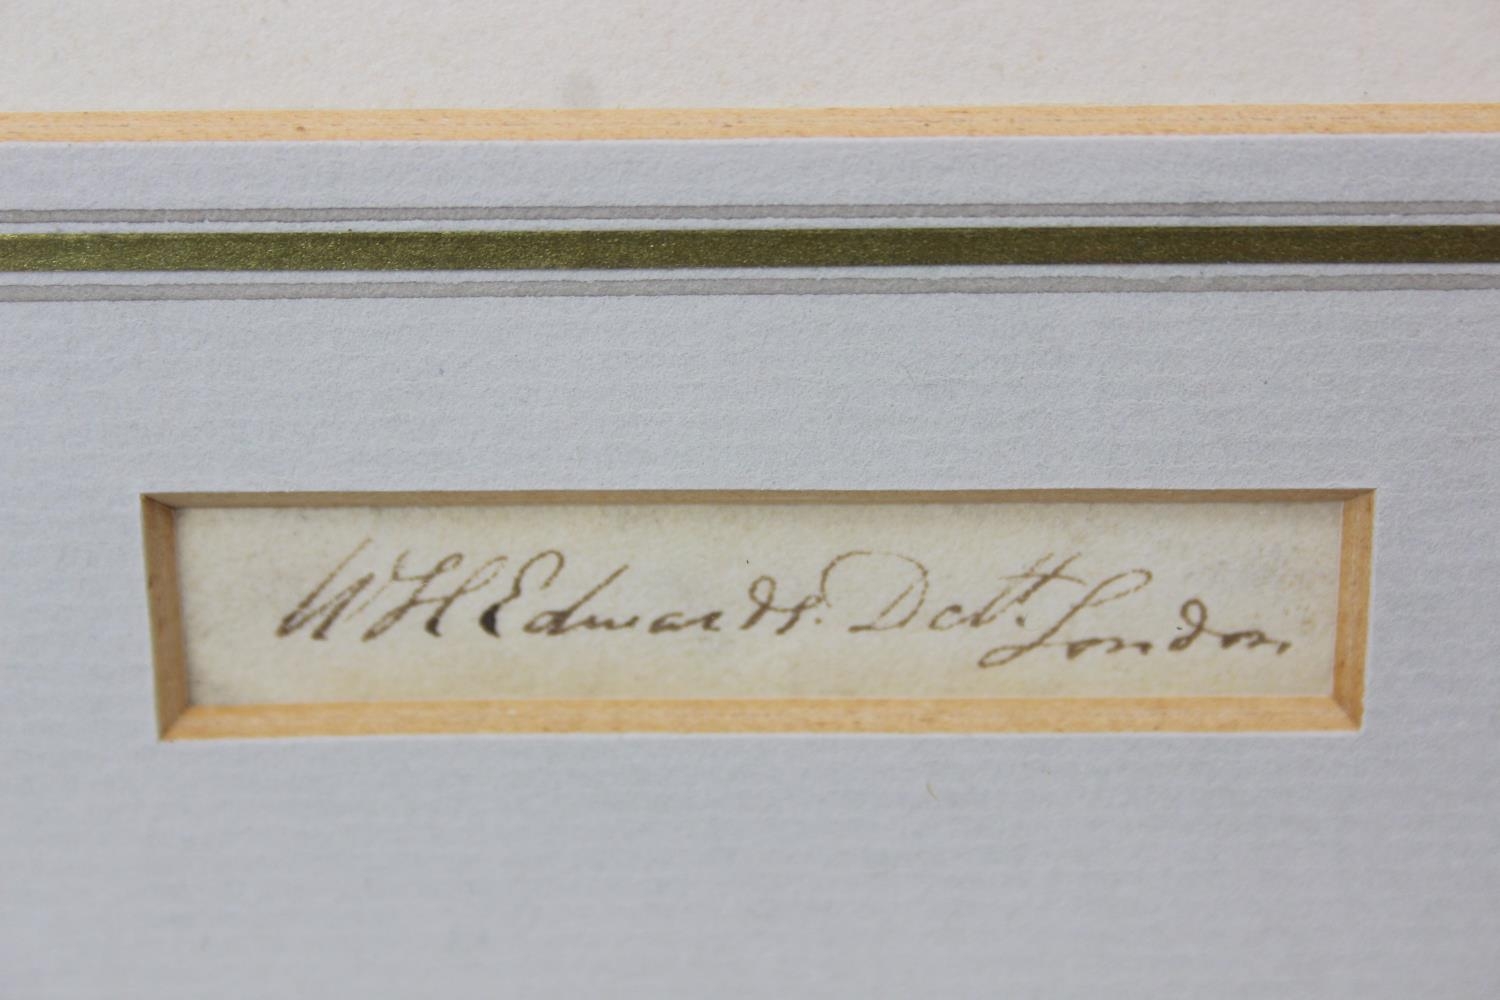 W H Edwards. Delt. London.